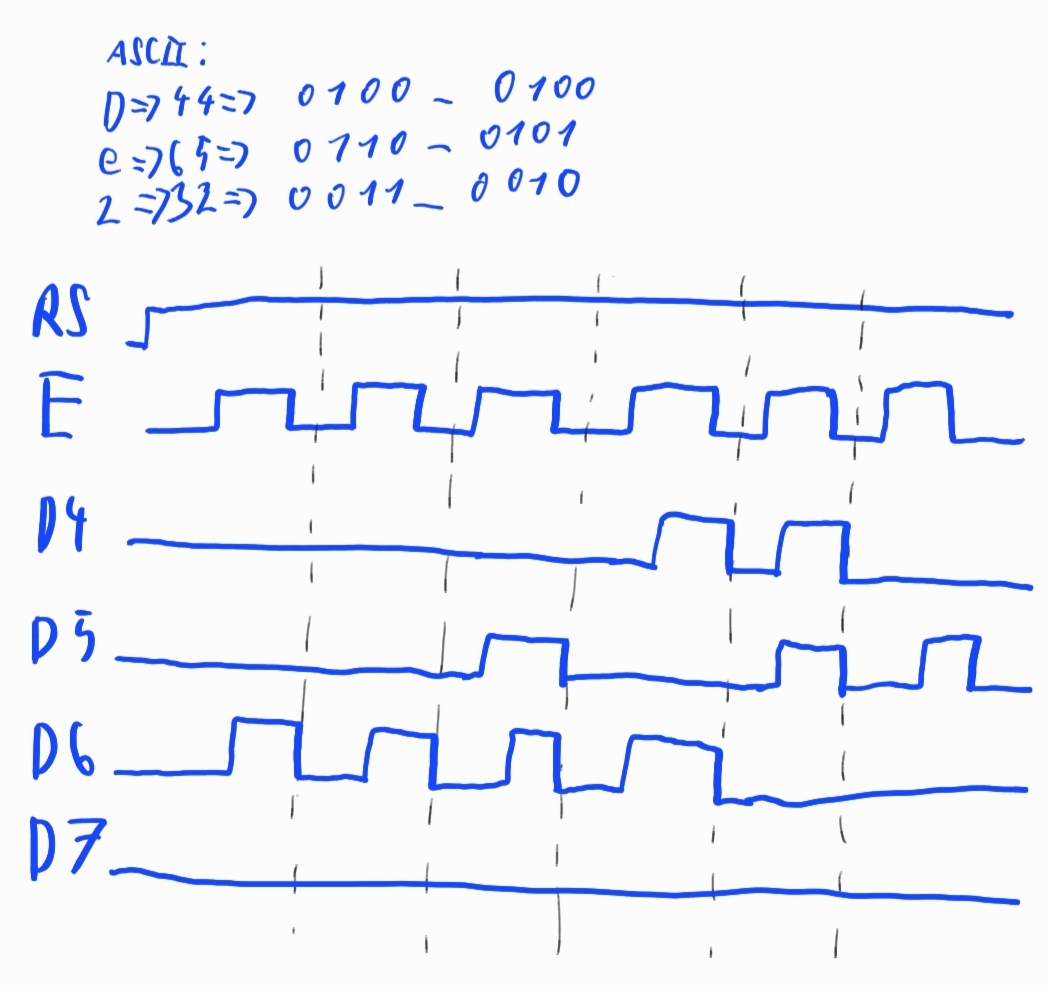 ASCII:
D=>44=> 0100_0100
e=>65=> 0110_0101
2=>32=> 0011_0010
RS
E
D4
D5
D6
D7